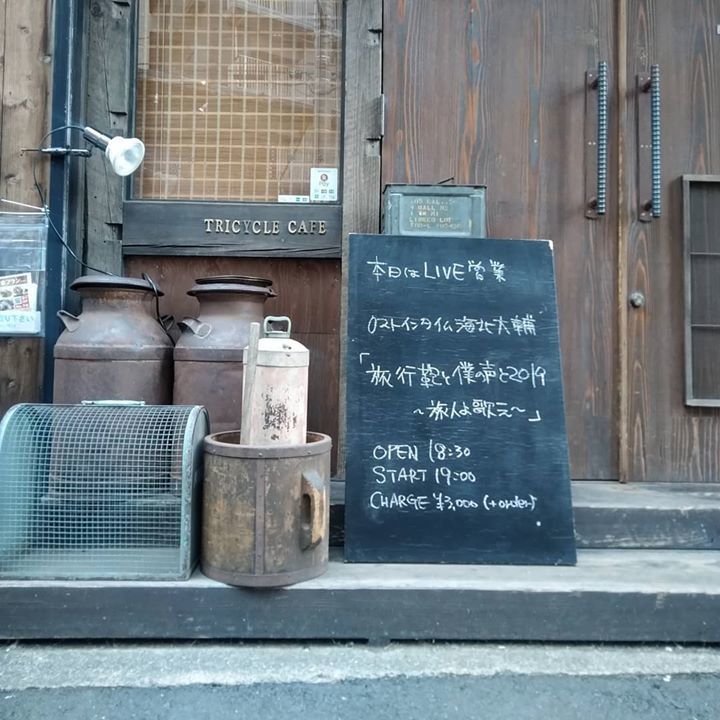 Pay
TRICYCLE CAFE
本日はLIVE営業
ロストインタイム海北大輔
「旅行鞄と僕の声と2019
～旅人よ歌え～」
OPEN 18:30
START 19:00
CHARGE ¥3,000 (+order)
下さい